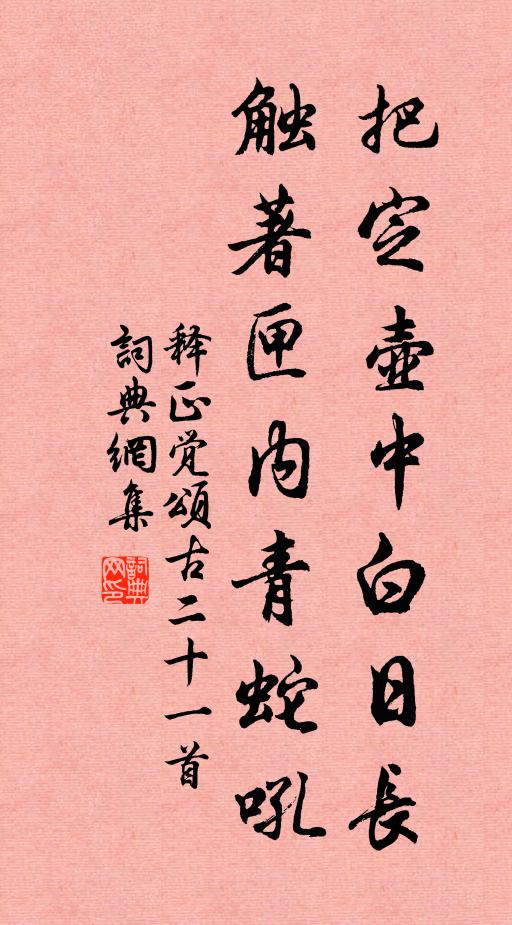 把定壺中白日長
触著匣内青蛇吼
释正覚頌古二十一首
詞典網集
詞典网印